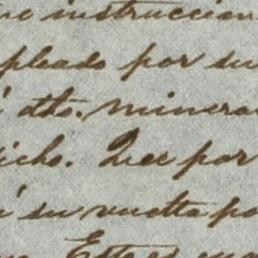 instruccion
pleado por su
dho. minera
dicho. Que por
á su vuelta po